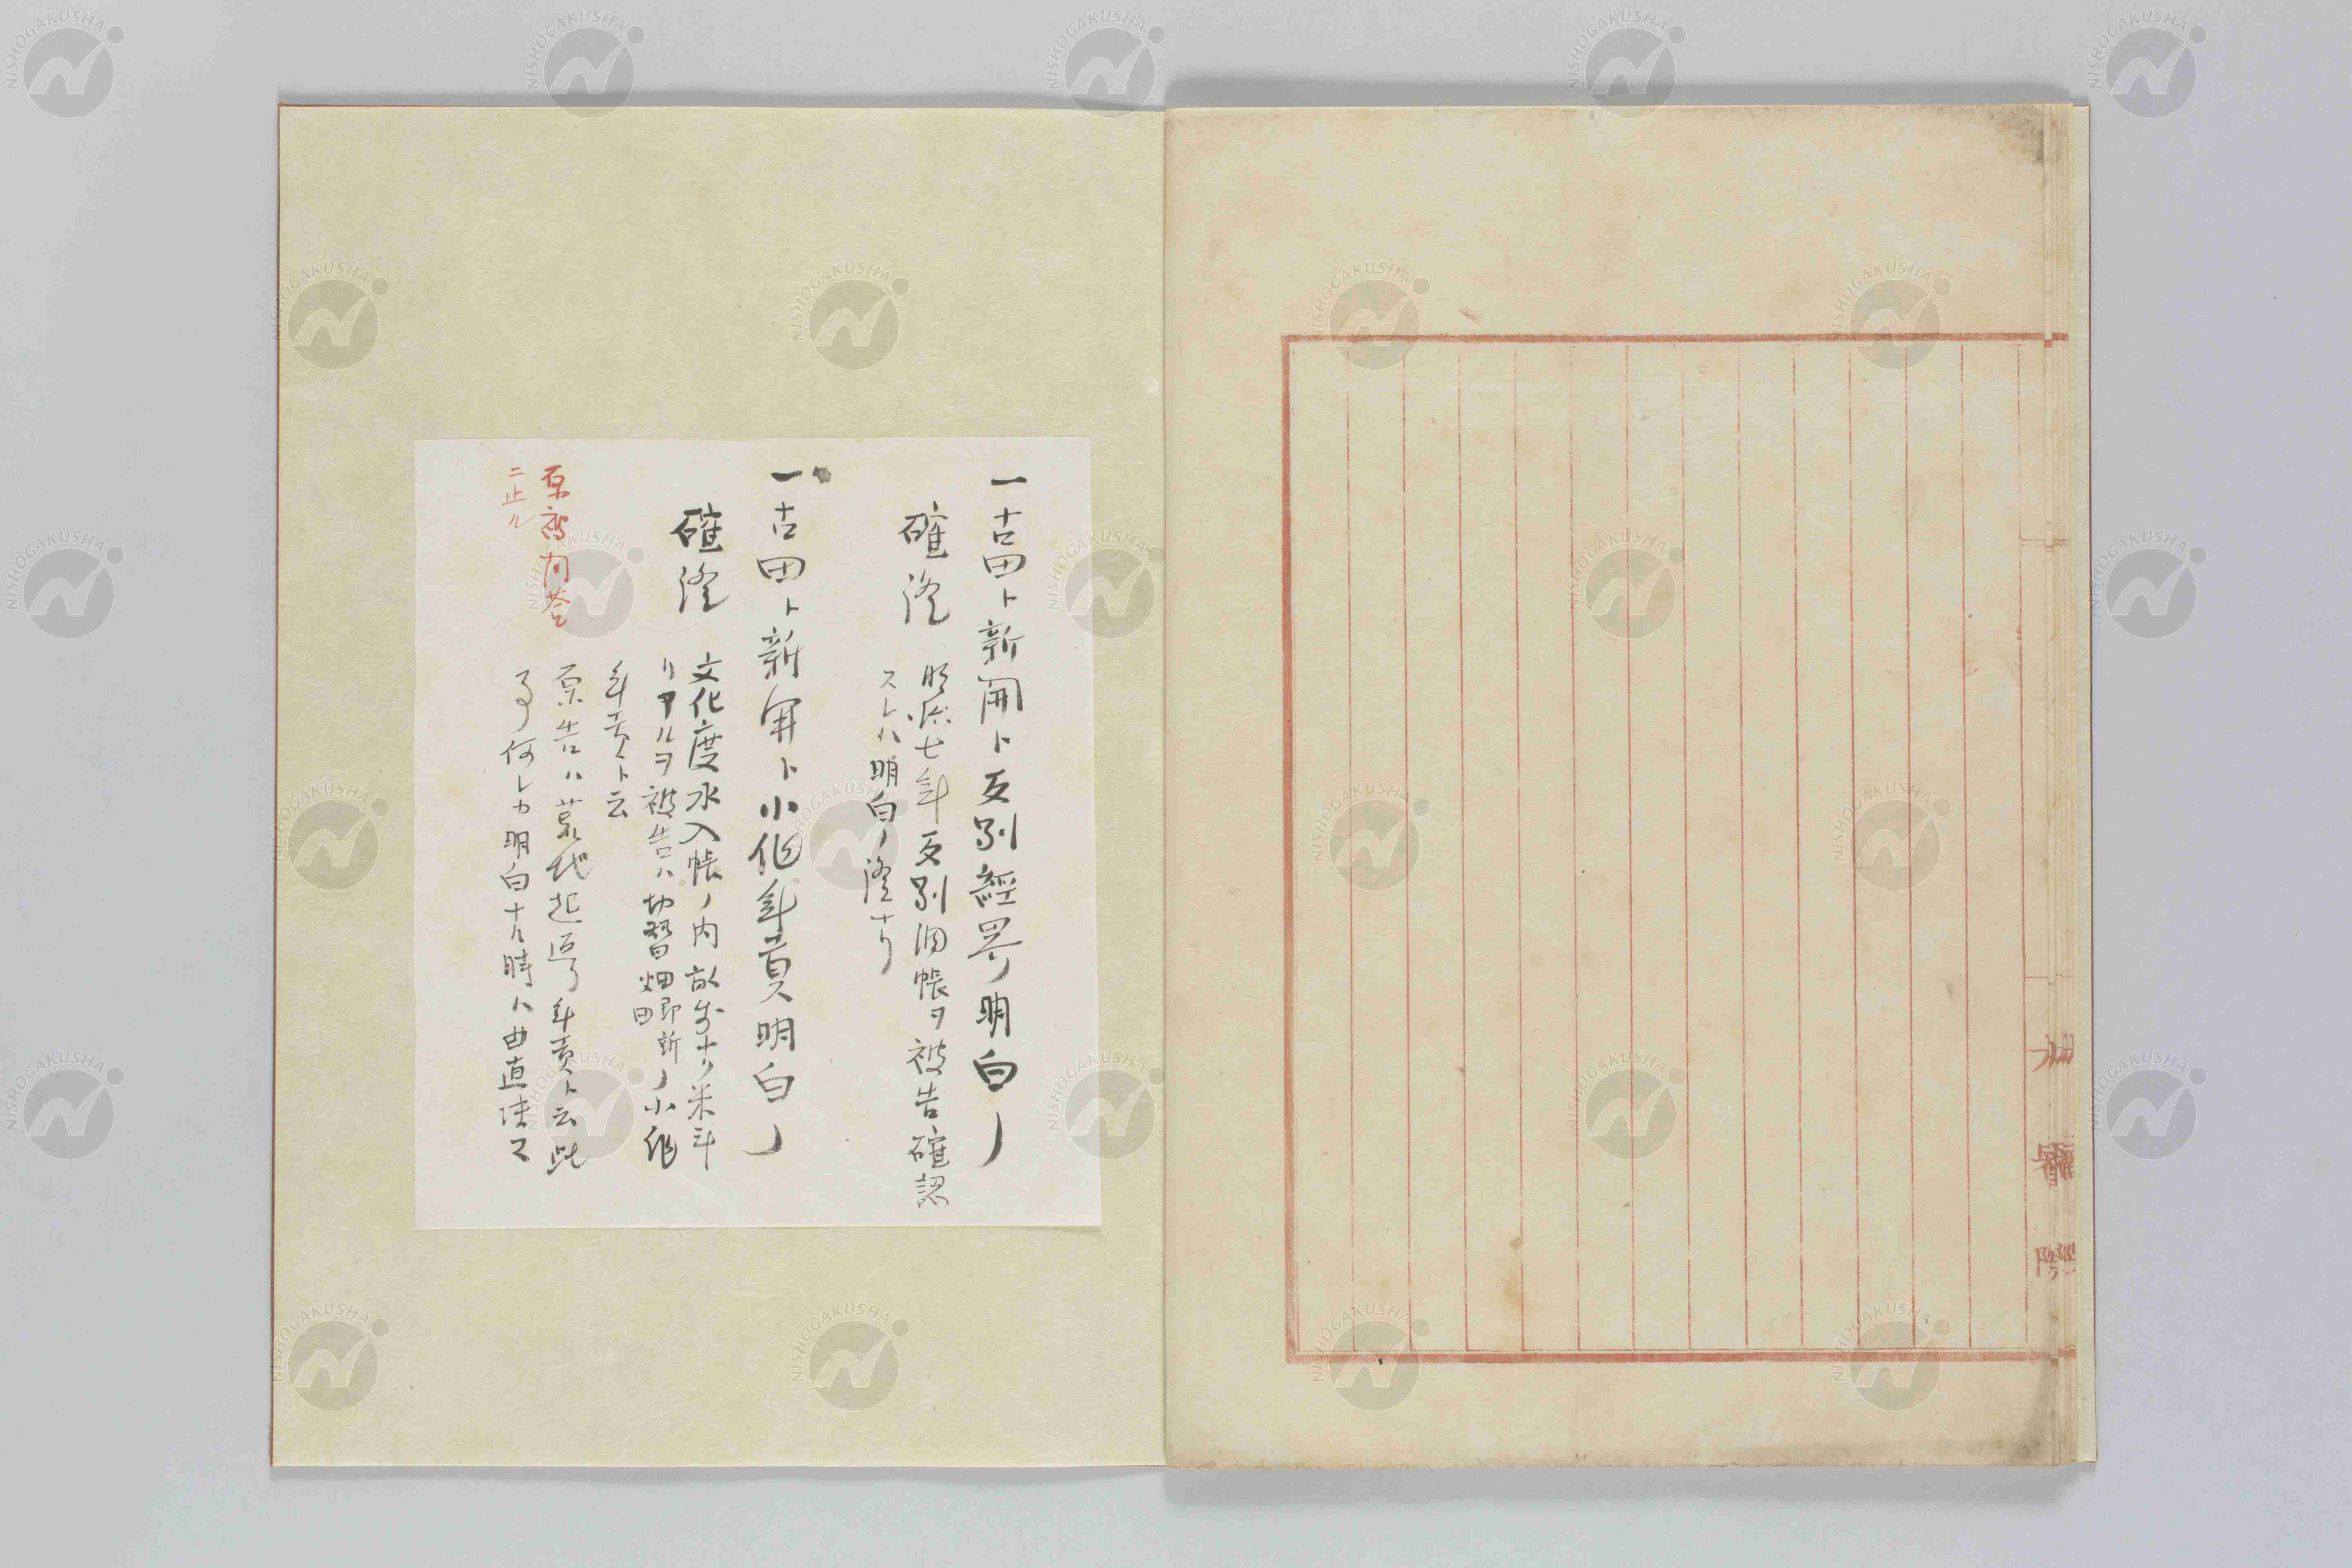 一古田ト新開ト反別經界明白ノ
確證
明治七年反別旧帳ヲ被告確認
スレハ明白ノ證ナリ
一古田ト新開ト小作年貢明白ノ
確證
文化度水入帳ノ内 米斗
リアルヲ被告ハ切替畑即新田ノ小作
年貢ト云
原告ハ荒地起返年貢ト云此
事何レカ明白ナル時ハ曲直決ス
原被問答
ニ止ル
NISHOGAKUSHA